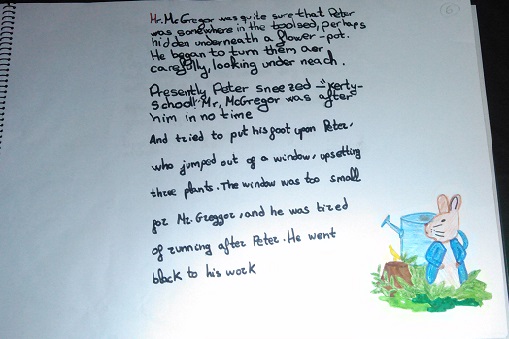 6
Mr. McGregor was quite sure that Peter
was somewhere in the toolsed, perhaps
hidden underneath a flower-pot.
He began to turn them aer
carefally, looking under neach.
Presently Peter sneezed -"kerty-
school! Mr, McGregor was after
him in no time
And tried to put his foot upon Peter,
who jumped out of a window, upsetting
three plants. The window was too small
for Mr. Greggor, and he was tired
of running after Peter. He went
back to his work